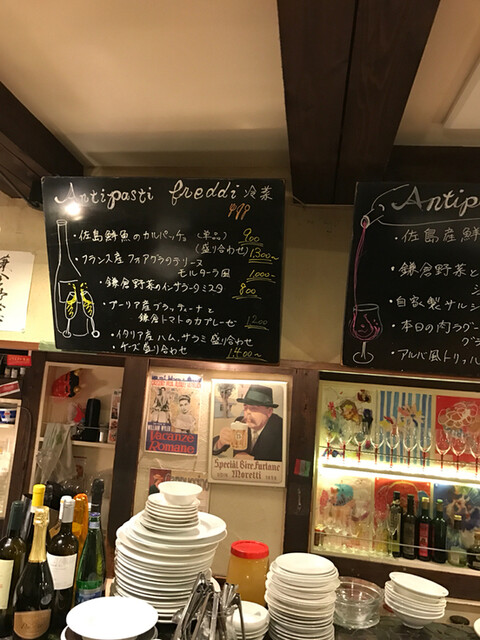 Antipasti freddi 冷菜
・佐島鮮魚のカルパッチョ (単品) 900
(盛り合わせ) 1,300〜
・フランス産フォアグラテリーヌ
モルターラ風 1,000〜
・鎌倉野菜のインサラータミスタ 800
・プーリア産ブラッティーナと
鎌倉トマトのカプレーゼ 1200
・イタリア産ハム、サラミ盛り合わせ
・チーズ盛り合わせ 1,400〜
Antip
・佐島産鮮
・鎌倉野菜と
・自家製サルシ
・本日の肉ラグー
グラ
・アルバ風トリッパ
Vacanze
Romane
Special Bire Furlane
Moretti